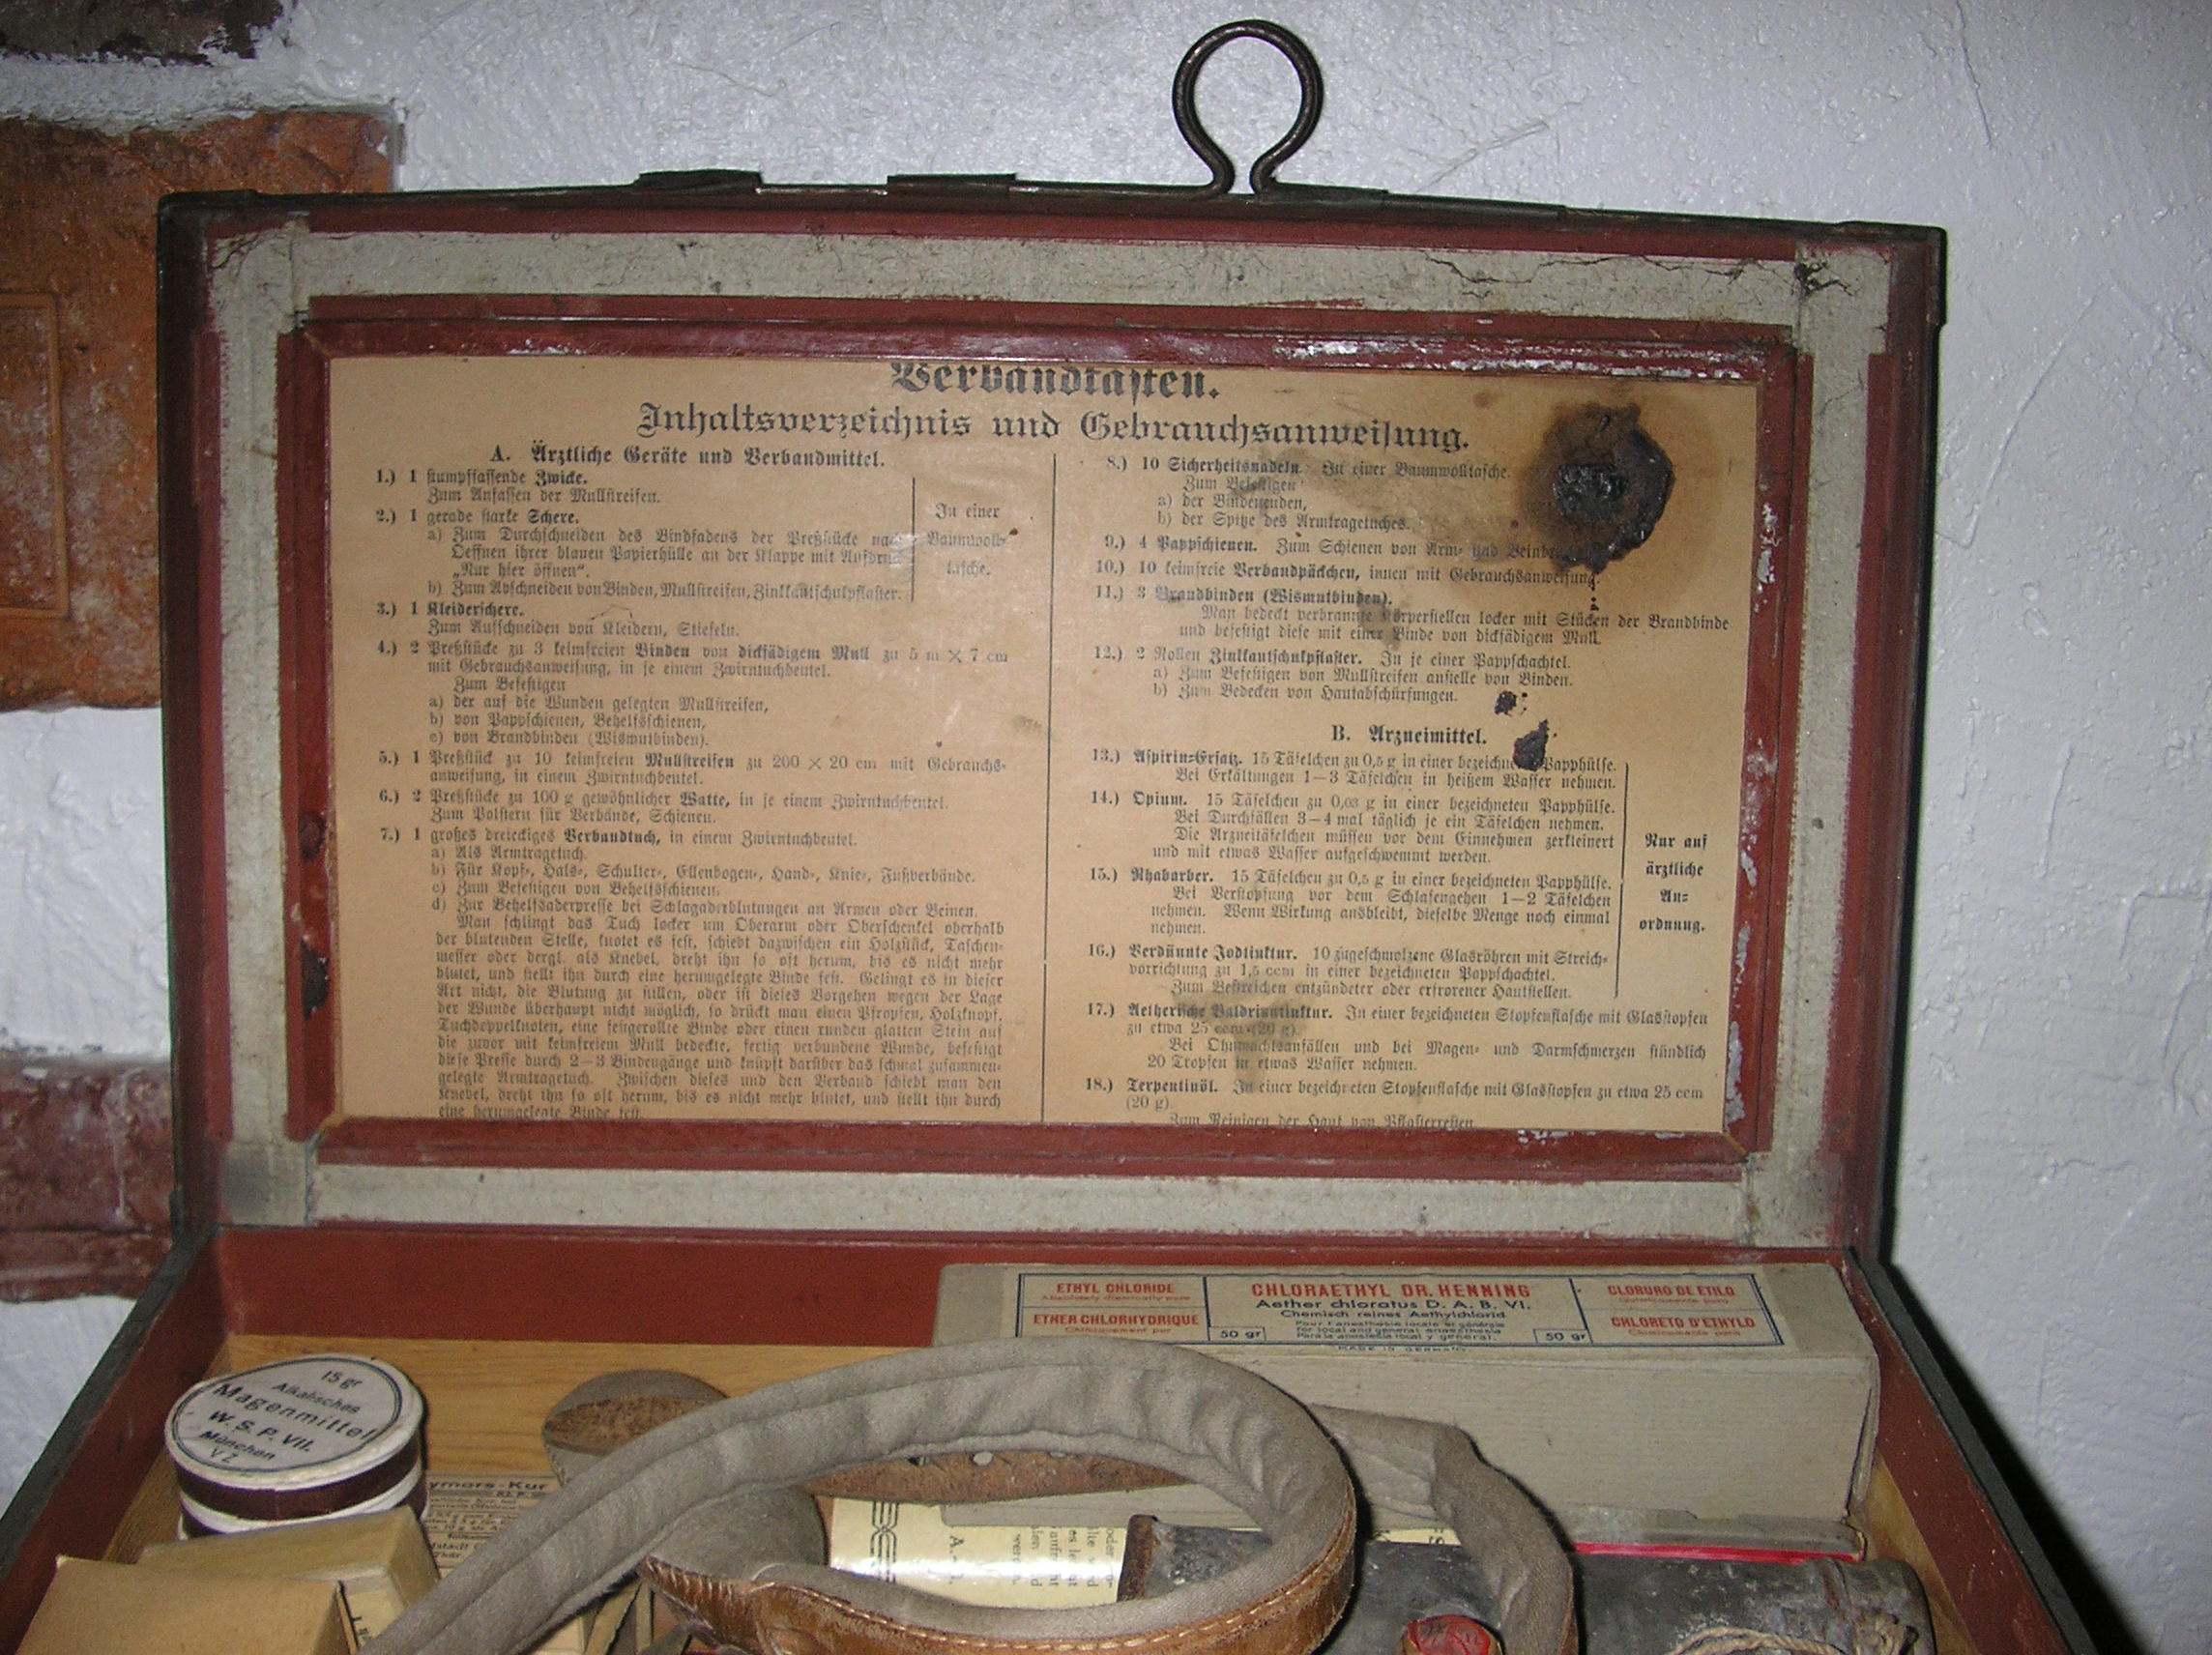 Verbandkasten.
Inhaltsverzeichnis und Gebrauchsanweisung.
A. Ärztliche Geräte und Verbandmittel.
1.) 1 stumpffassende Zwicke.
Zum Anfassen der Mullstreifen.
2.) 1 gerade starke Schere.
a) Zum Durchschneiden des Bindfadens der Preßstücke nach
Oeffnen ihrer blauen Papierhülle an der Klappe mit Aufdruck
„Nur hier öffnen“.
b) Zum Abschneiden von Binden, Mullstreifen, Zinkkautschukpflaster.
In einer
Baumwoll-
tasche.
3.) 1 Kleiderschere.
Zum Aufschneiden von Kleidern, Stiefeln.
4.) 2 Preßstücke zu 3 keimfreien Binden von dickfädigem Mull zu 5 m × 7 cm
mit Gebrauchsanweisung, in je einem Zwirntuchbeutel.
Zum Befestigen
a) der auf die Wunden gelegten Mullstreifen,
b) von Pappschienen, Behelfsschienen,
c) von Brandbinden (Wismutbinden).
5.) 1 Preßstück zu 10 keimfreien Mullstreifen zu 200 × 20 cm mit Gebrauchs-
anweisung, in einem Zwirntuchbeutel.
6.) 2 Preßstücke zu 100 g gewöhnlicher Watte, in je einem Zwirntuchbeutel.
Zum Polstern für Verbände, Schienen.
7.) 1 großes dreieckiges Verbandtuch, in einem Zwirntuchbeutel.
a) Als Armtragetuch.
b) Für Kopf-, Hals-, Schulter-, Ellenbogen-, Hand-, Knie-, Fußverbände.
c) Zum Befestigen von Behelfsschienen.
d) Zur Behelfsaderpresse bei Schlagaderblutungen an Armen oder Beinen.
Man schlingt das Tuch locker um Oberarm oder Oberschenkel oberhalb
der blutenden Stelle, knotet es fest, schiebt dazwischen ein Holzstück, Taschen-
messer oder dergl. als Knebel, dreht ihn so oft herum, bis es nicht mehr
blutet, und stellt ihn durch eine herumgelegte Binde fest. Gelingt es in dieser
Art nicht, die Blutung zu stillen, oder ist dieses Vorgehen wegen der Lage
der Wunde überhaupt nicht möglich, so drückt man einen Pfropfen, Holzknopf,
Tuchdoppelknoten, eine festgerollte Binde oder einen runden glatten Stein auf
die zuvor mit keimfreiem Mull bedeckte, fertig verbundene Wunde, befestigt
diese Presse durch 2–3 Bindengänge und knüpft darüber das schmal zusammen-
gelegte Armtragetuch. Zwischen dieses und den Verband schiebt man den
Knebel, dreht ihn so oft herum, bis es nicht mehr blutet, und stellt ihn durch
eine herumgelegte Binde fest.
8.) 10 Sicherheitsnadeln. In einer Baumwolltasche.
Zum Befestigen
a) der Bindenenden,
b) der Spitze des Armtragetuches.
9.) 4 Pappschienen. Zum Schienen von Arm- und
10.) 10 keimfreie Verbandpäckchen, innen mit Gebrauchsanweisung.
11.) 3 Brandbinden (Wismutbinden).
Man bedeckt verbrannte Körperstellen locker mit Stücken der Brandbinde
und befestigt diese mit einer Binde von dickfädigem Mull.
12.) 2 Rollen Zinkkautschukpflaster. In je einer Pappschachtel.
a) Zum Befestigen von Mullstreifen anstelle von Binden.
b) Zum Bedecken von Hautabschürfungen.
B. Arzneimittel.
13.) Aspirin-Ersatz. 15 Täfelchen zu 0,5 g in einer bezeichneten Papphülse.
Bei Erkältungen 1–3 Täfelchen in heißem Wasser nehmen.
14.) Opium. 15 Täfelchen zu 0,03 g in einer bezeichneten Papphülse.
Bei Durchfällen 3–4 mal täglich je ein Täfelchen nehmen.
Die Arzneitäfelchen müssen vor dem Einnehmen zerkleinert
und mit etwas Wasser aufgeschwemmt werden.
15.) Rhabarber. 15 Täfelchen zu 0,5 g in einer bezeichneten Papphülse.
Bei Verstopfung vor dem Schlafengehen 1–2 Täfelchen
nehmen. Wenn Wirkung ausbleibt, dieselbe Menge noch einmal
nehmen.
16.) Verdünnte Jodtinktur. 10 zugeschmolzene Glasröhren mit Streich-
vorrichtung zu 1,5 ccm in einer bezeichneten Pappschachtel.
Zum Bestreichen entzündeter oder erfrorener Hautstellen.
Nur auf
ärztliche
An-
ordnung.
17.) Aetherische Baldriantinktur. In einer bezeichneten Stopfenflasche mit Glasstopfen
zu etwa 25 ccm (20 g).
Bei Ohnmachtsanfällen und bei Magen- und Darmschmerzen stündlich
20 Tropfen in etwas Wasser nehmen.
18.) Terpentinöl. In einer bezeichneten Stopfenflasche mit Glasstopfen zu etwa 25 ccm
(20 g).
Zum Reinigen der Haut von Pflasterresten
ETHYL CHLORIDE
Absolutely chemically pure
ETHER CHLORHYDRIQUE
Chimiquement pur
CHLORAETHYL DR. HENNING
Aether chloratus D. A. B. VI.
Chemisch reines Aethylchlorid
Pour l'anesthésie locale et générale
For local and general anaesthesia
Para la anestesia local y general.
50 gr
50 gr
MADE IN GERMANY
CLORURO DE ETILO
Quimicamente puro
CHLORETO D'ETHYLO
Chimicamente puro
15 gr
Alkalisches
Magenmittel
W. S. P. VII.
München
V 2
ymors-Kur